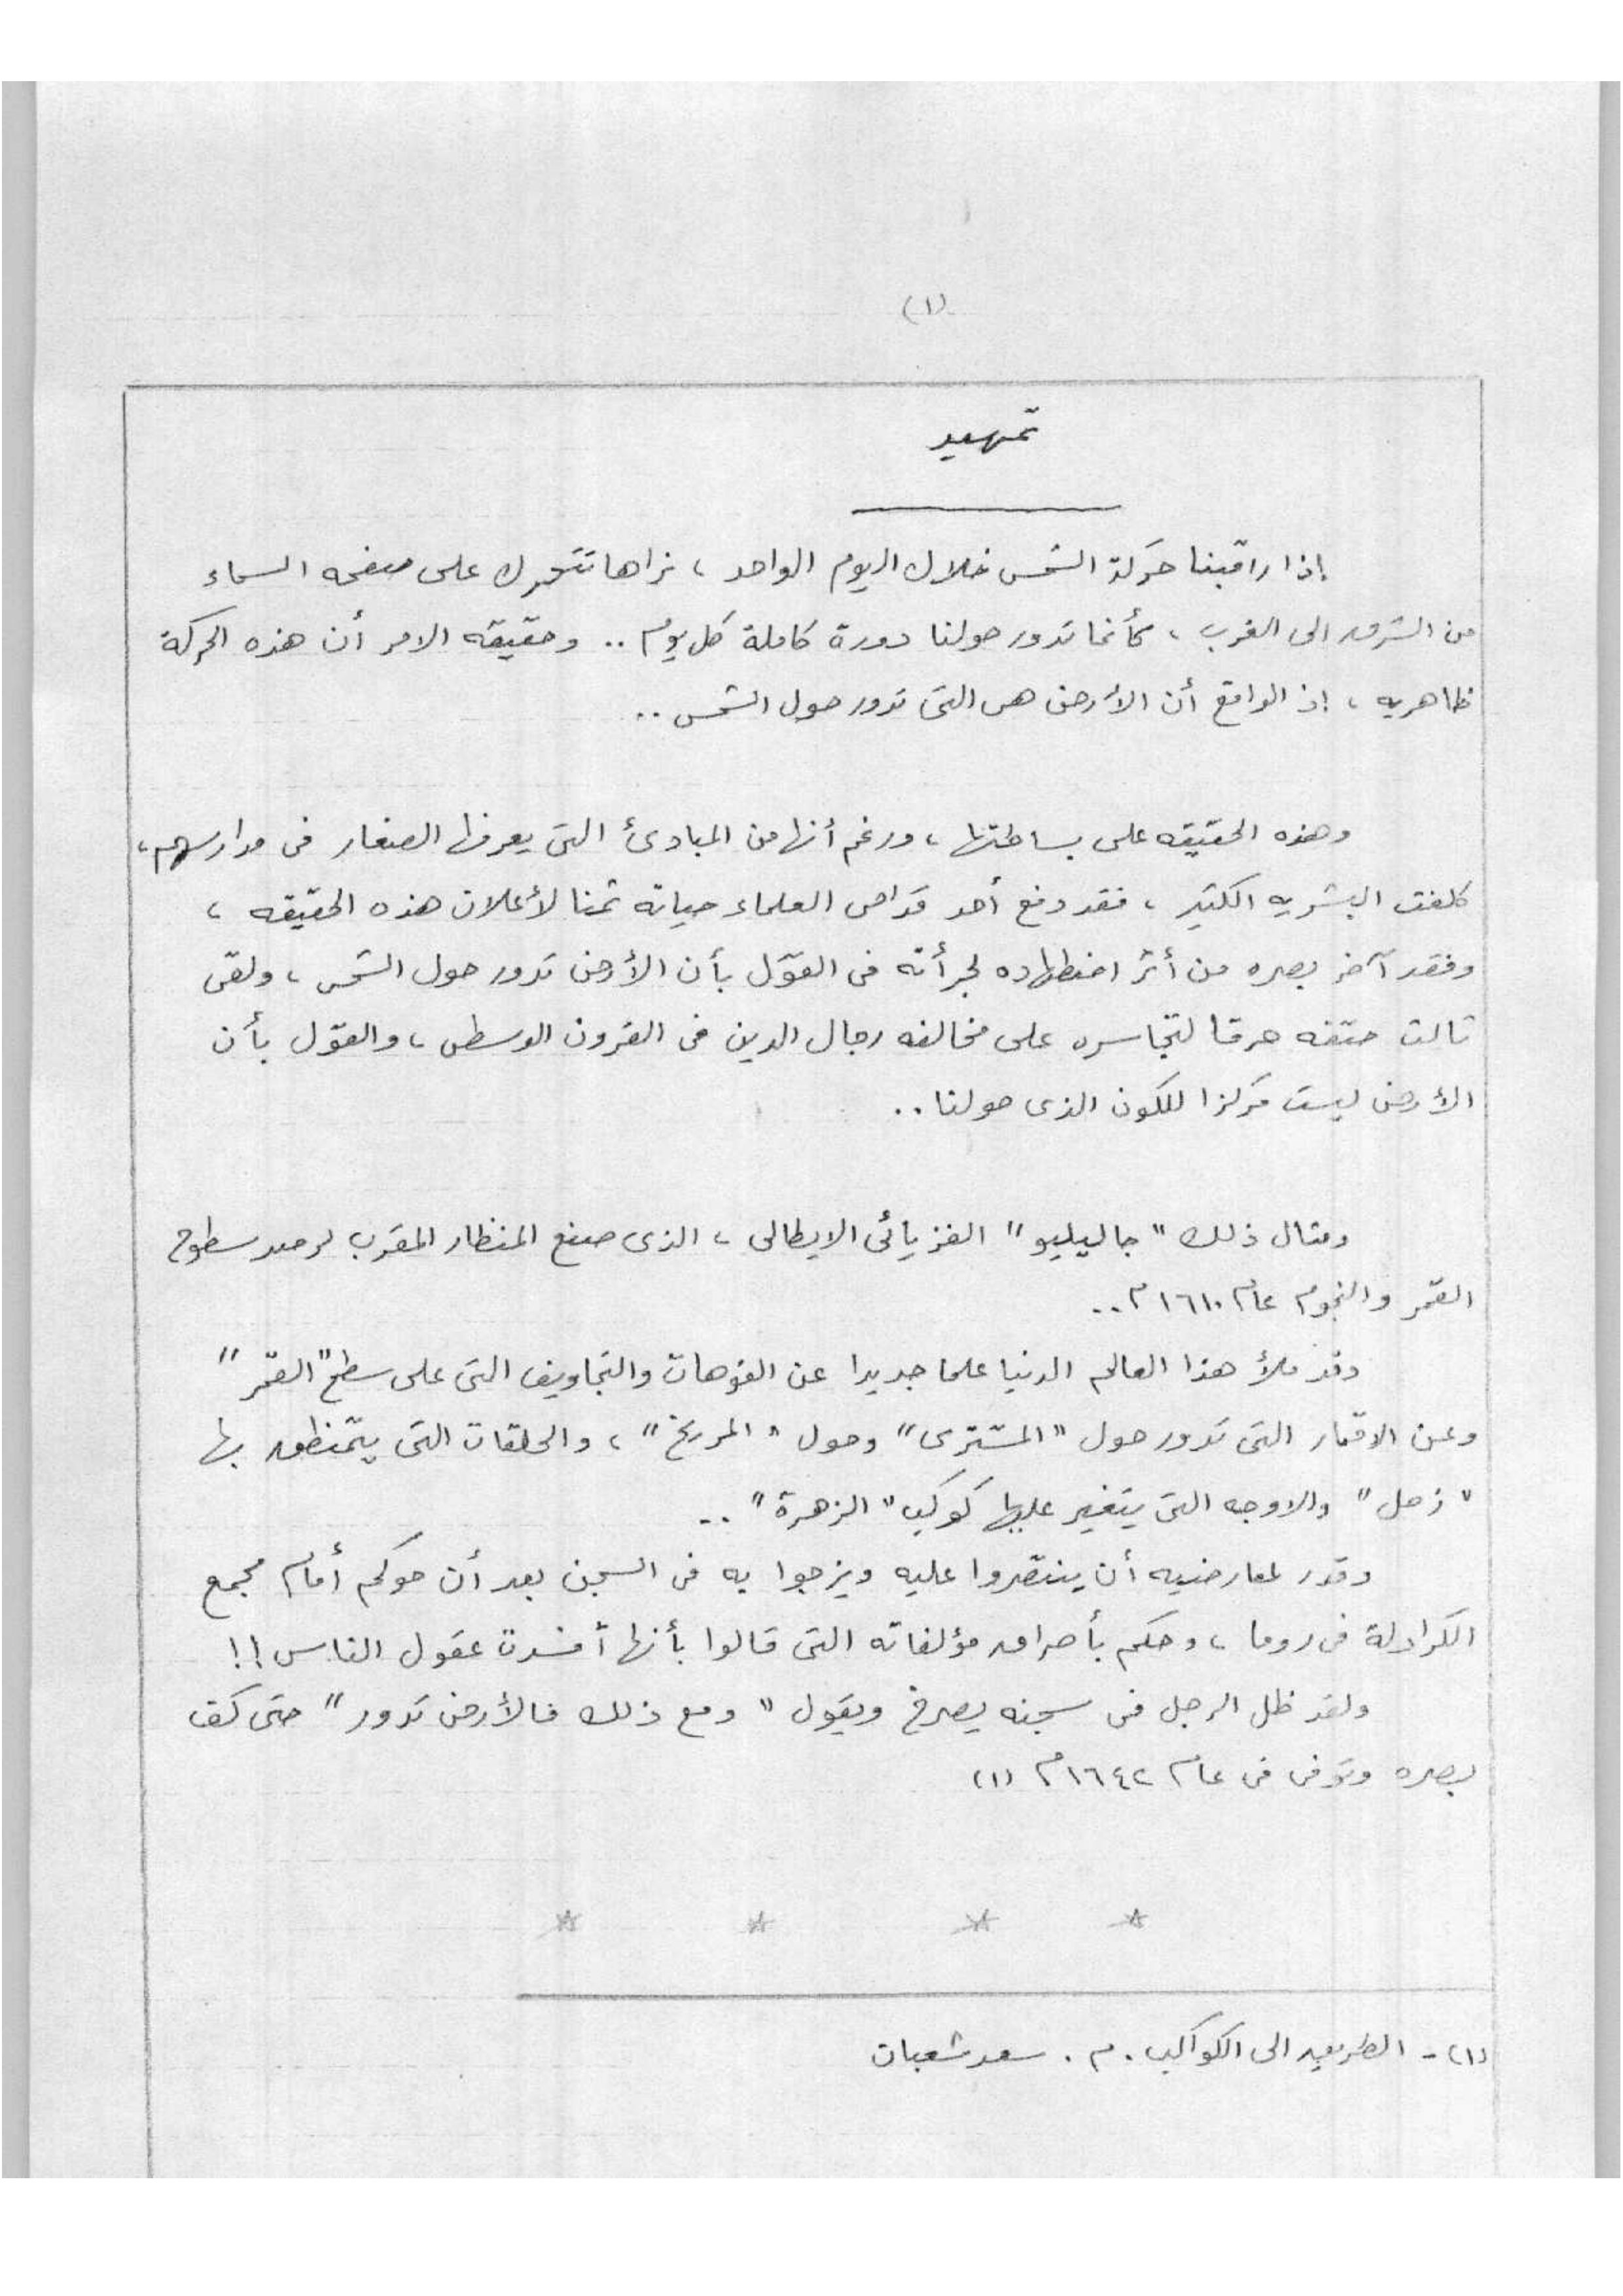 (١)
تمهيد
إذا راقبنا حركة الشمس خلال اليوم الواحد ، نراها تتحرك على صفحه السماء
من الشرق الى الغرب ، كأنما تدور حولنا دورة كاملة كل يوم .. وحقيقه الامر أن هذه الحركة
ظاهريه ، إذ الواقع أن الأرض هى التى تدور حول الشمس ..
وهذه الحقيقه على بساطتها ، ورغم أنها من المبادئ التى يعرفها الصغار فى مدارسهم ،
كلفت البشريه الكثير ، فقد دفع أحد قدامى العلماء حياته ثمنا لأعلان هذه الحقيقه ،
وفقد آخر بصره من أثر اضطهاده لجرأته فى القول بأن الأرض تدور حول الشمس ، ولقى
ثالث حتفه حرقا لتجاسره على مخالفه رجال الدين فى القرون الوسطى ، والقول بأن
الأرض ليست مركزا للكون الذى حولنا ..
ومثال ذلك " جاليليو " الفزيائى الايطالى ، الذى صنع المنظار المقرب لرصد سطوح
القمر والنجوم عام ١٦١٠ م ..
وقد ملأ هذا العالم الدنيا علما جديدا عن الفوهات والتجاويف التى على سطح " القمر "
وعن الاقمار التى تدور حول " المشترى " وحول " المريخ " ، والحلقات التى يتمنطق بها
" زحل " والاوجه التى يتغير عليها كوكب " الزهرة " ..
وقدر لمعارضيه أن ينتصروا عليه ويزجوا به فى السجن بعد أن حوكم أمام مجمع
الكرادلة فى روما ، وحكم بأحراق مؤلفاته التى قالوا بأنها أفسدت عقول الناس !!
ولقد ظل الرجل فى سجنه يصرخ ويقول " ومع ذلك فالأرض تدور " حتى كف
بصره وتوفى فى عام ١٦٤٢ م (١)
(١) - الطريق الى الكواكب . م . سعد شعبان